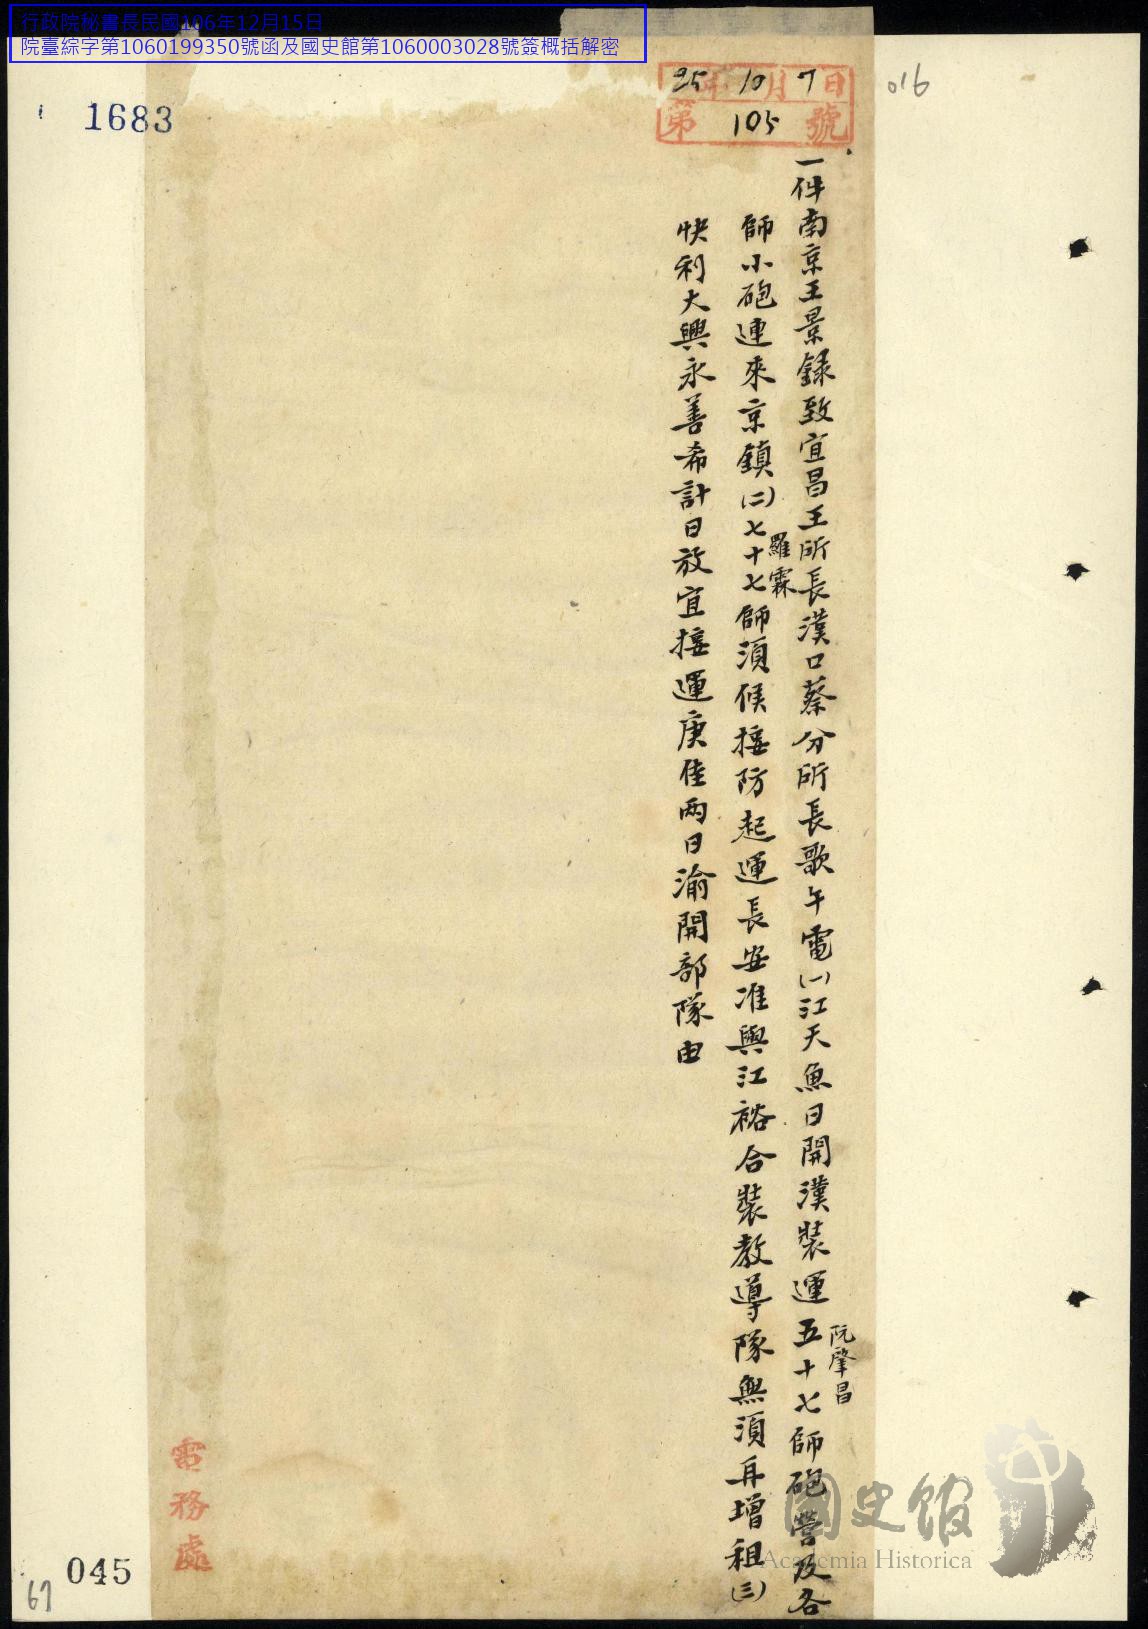 行政院秘書長民國106年12月15日
院臺綜字第1060199350號函及國史館第1060003028號簽概括解密
1683
016
25年10月7日
第105號
一件南京王景録致宜昌王所長漢口蔡分所長歌午電(一)江天魚日開漢裝運五十七師砲營及各
阮肇昌
師小砲連來京鎮(二)七十七師須候接防起運長安准與江裕合裝教導隊無須再增租(三)
羅霖
快利大興永善希計日放宜接運庚佳兩日渝開部隊由
電務處
國史館
Academia Historica
045
67